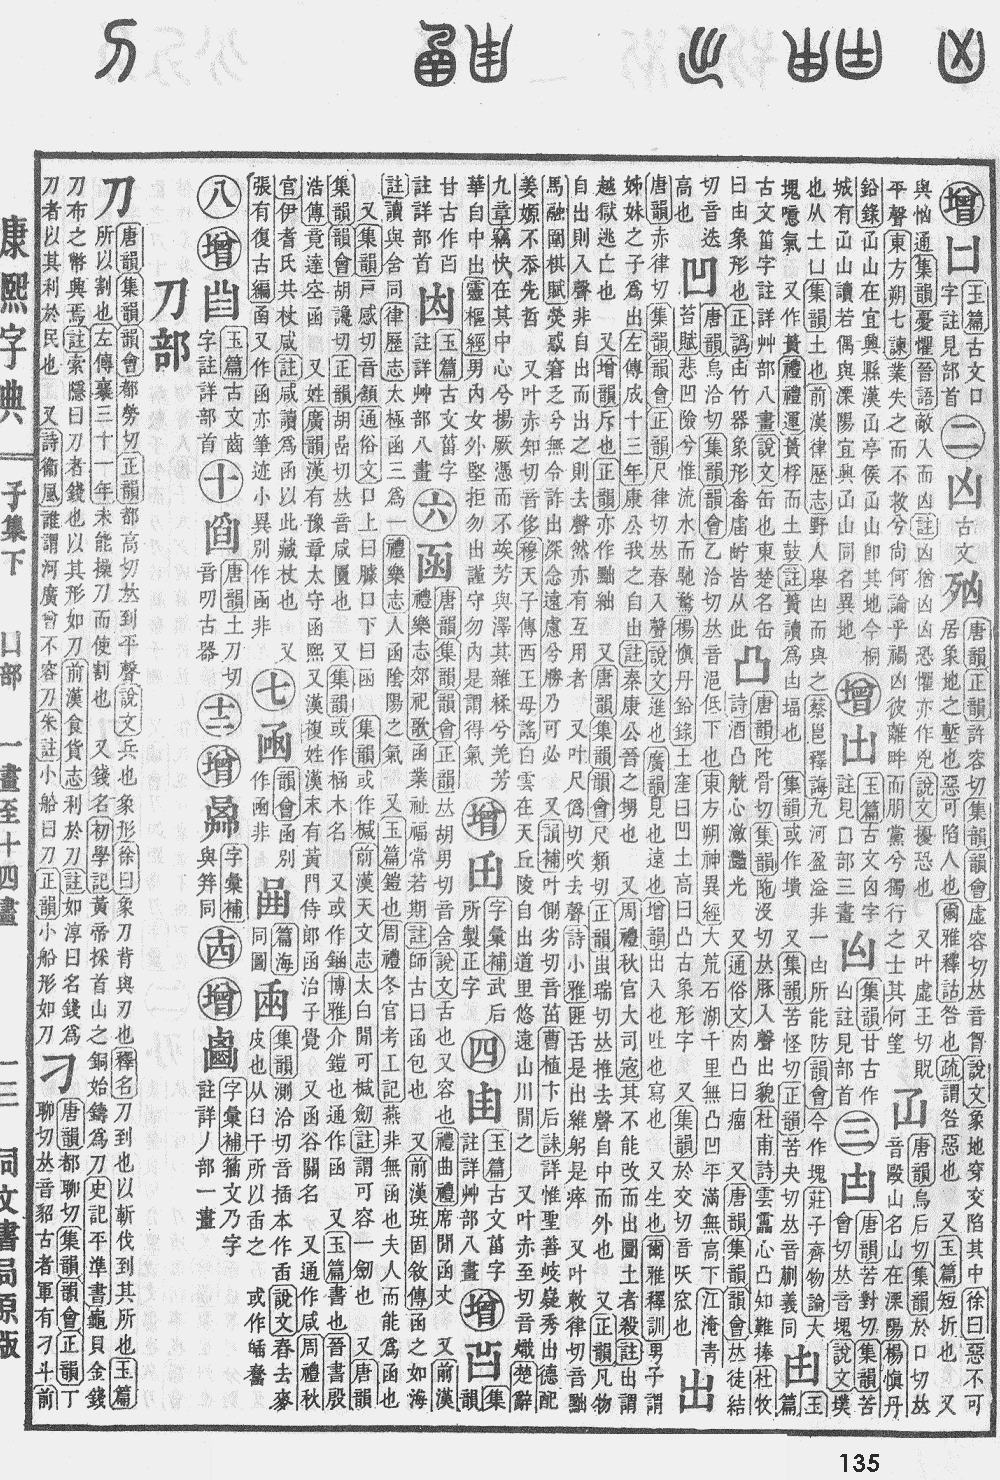 增 凵 玉篇古文口字註見部首
二 凶 古文 唐韻正韻許容切集韻韻會虛容切𠀤音胷說文象地穿交陷其中徐曰惡不可居象地之塹也惡可陷人也爾雅釋詁咎也疏謂咎惡也 又玉篇短折也 又
與恟通集韻憂懼晉語敵入而凶註凶猶凶凶恐懼亦作兇說文擾恐也 又叶虛王切貺平聲東方朔七諫業失之而不救兮尚何論乎禍凶彼離畔而朋黨兮獨行之士其何望
唐韻烏后切集韻於口切𠀤音毆山名山在溧陽楊愼丹鉛錄
山在宜興縣漢 亭侯 山卽其地今桐城有 山讀若偶與溧陽宜興 山同名異地
增 玉篇古文凶字註見凵部三畫
凶註見部首
三 凷 唐韻苦對切集韻苦會切𠀤音塊說文墣也从土凵集韻土也前漢律歷志野人舉凷而與之蔡邕釋誨九河盈溢非一凷所能防韻會今作塊莊子齊物論大塊噫氣 又作蕢禮禮運蕢桴而土鼓註蕢讀爲凷堛也 集韻或作墤 又集韻苦怪切正韻苦夬切𠀤音蒯義同
甴 玉篇古文𠚖字註詳艸部八畫說文缶也東楚名缶曰甴象形也正譌甴竹器象形畚𤰇皆从此
凸 唐韻陀骨切集韻陁沒切𠀤豚入聲出貌杜甫詩雲靁心凸知難捧杜牧詩酒凸觥心瀲灩光 又通俗文肉凸曰瘤 又唐韻集韻韻會𠀤徒結切音迭高也
凹 唐韻烏洽切集韻韻會乙洽切𠀤音浥低下也東方朔神異經大荒石湖千里無凸凹平滿無高下江淹靑苔賦悲凹險兮惟流水而馳騖楊愼丹鉛錄土窪曰凹土高曰凸古象形字 又集韻於交切音㕭窊也
出 唐韻赤律切集韻韻會正韻尺律切𠀤春入聲說文進也廣韻見也遠也增韻出入也吐也寫也 又生也爾雅釋訓男子謂姊妹之子爲出左傳成十三年康公我之自出註秦康公晉之甥也 又周禮秋官大司寇其不能改而出圜土者殺註出謂越獄逃亡也 又增韻斥也正韻亦作黜絀 又唐韻集韻韻會尺類切正韻蚩瑞切𠀤推去聲自中而外也 又正韻凡物自出出則入聲非自出而出之則去聲然亦有互用者 又叶尺僞切吹去聲詩小雅匪舌是出維躬是瘁 又叶敕律切音黜馬融圍棋賦熒惑窘乏兮無令詐出深念遠慮兮勝乃可必 又韻補叶側劣切音茁曹植卞后誄詳惟聖善岐嶷秀出德配姜嫄不忝先哲 又叶赤知切音侈穆天子傳西王母謠白雲在天丘陵自出道里悠遠山川閒之 又叶赤至切音熾楚辭九章竊快在其中心兮揚厥憑而不竢芳與澤其雜糅兮羌芳華自中出靈樞經男內女外堅拒勿出謹守勿內是謂得氣
增 字彙補武后所製正字
四 甶 玉篇古文菑字註詳艸部八畫
增 集韻甘古作𠙸註詳部首
凼 玉篇古文菑字註詳艸部八畫
六 函 唐韻集韻韻會正韻𠀤胡男切音含說文舌也 又容也禮曲禮席閒函丈 又前漢禮樂志郊祀歌函蒙祉福常若期註師古曰函包也 又前漢班固敘傳函之如海註讀與含同律歷志太極函三爲一禮樂志人函陰陽之氣 又玉篇鎧也周禮冬官考工記燕非無函也夫人而能爲函也 又集韻戸感切音頷通俗文口上曰臄口下曰函 集韻或作椷前漢天文志太白閒可椷劒註謂可容一劒也 又唐韻集韻韻會胡讒切正韻胡嵒切𠀤音咸匱也 又集韻或作𣔼木名 又或作𨦻博雅介鎧也通作函 又玉篇書也晉書殷浩傳竟達空函 又姓廣韻漢有豫章太守函熙又漢復姓漢末有黃門侍郎函治子覺 又函谷關名 又通作咸周禮秋官伊耆氏共杖咸註咸讀爲函以此藏杖也 又張有復古編函又作㮀亦筆迹小異別作凾非
七 凾 韻會函別作凾非
篇海同圖
集韻測洽切音插本作臿說文舂去麥皮也从臼干所以臿之 或作𤿭
八 增 玉篇古文齒字註詳部首
十 唐韻土刀切音叨古器
十三 增 字彙補與筭同
十四 增 字彙補籀文乃字註詳丿部一畫
刀部
刀 唐韻集韻韻會都勞切正韻都高切𠀤到平聲說文兵也象形徐曰象刀背與刃也釋名刀到也以斬伐到其所也玉篇所以割也左傳襄三十一年未能操刀而使割也 又錢名初學記黃帝採首山之銅始鑄爲刀史記平準書龜貝金錢刀布之幣興焉註索隱曰刀者錢也以其形如刀前漢食貨志利於刀註如淳曰名錢爲刀者以其利於民也 又詩衞風誰謂河廣曾不容刀朱註小船曰刀正韻小船形如刀
刁 唐韻都聊切集韻韻會正韻丁聊切𠀤音貂古者軍有刁斗前
康熙字典
子集下 凵部 一畫至十四畫
一三
同文書局原版
135